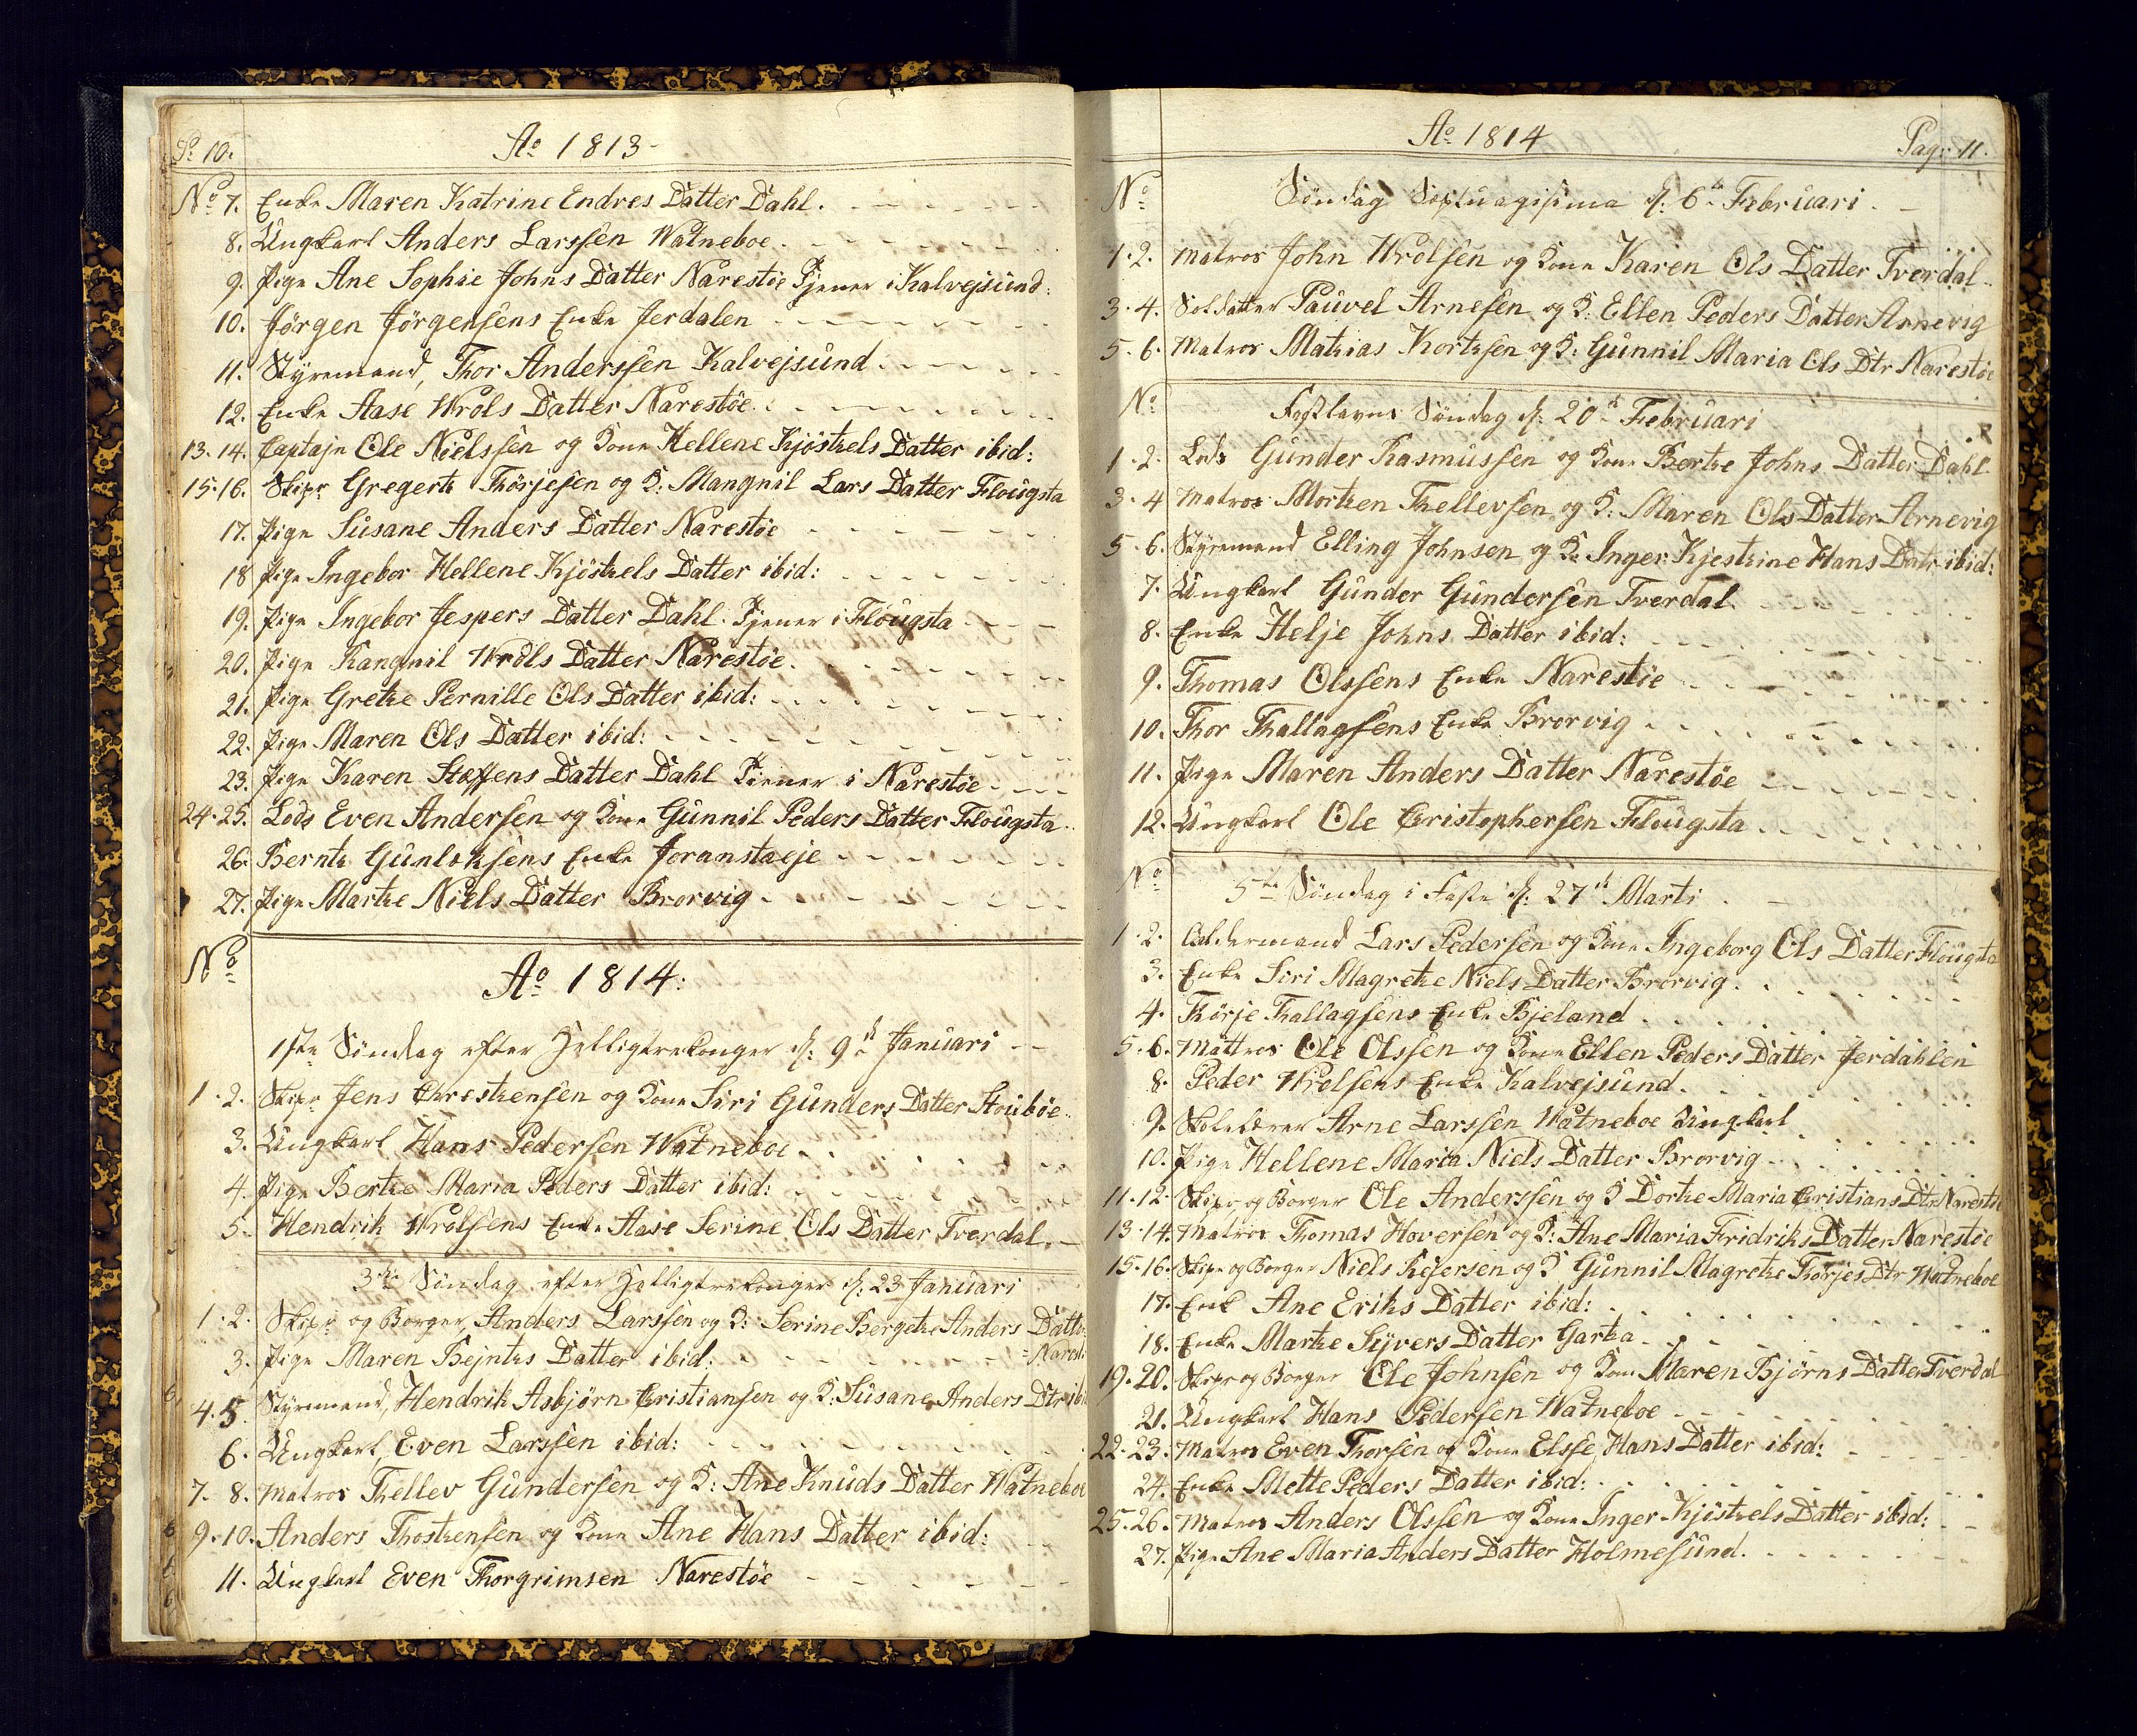 P. 10.
Ao 1813
No 7. Enke Maren Katrine Endres Datter Dahl.
8. Ungkarl Anders Larssen Watneboe.
9. Pige Ane Sophie Johns Datter Narestøe Tjener i Kalvejsund.
10. Jørgen Jørgensens Enke Jerdalen
11. Styremand, Thor Anderssen Kalvejsund.
12. Enke Aase Wrols Datter Narestøe.
13. 14. Captajn Ole Nielssen og Kone Hellene Kjöstels Datter ibid:
15. 16. Skipr Gregert Thörjesen og K: Mangnil Lars Datter Flougsta
17. Pige Susane Anders Datter Narestøe
18 Pige Ingebor Hellene Kjöstels Datter ibid:
19. Pige Ingebor Jespers Datter Dahl. Tjener i Flougsta
20. Pige Rangnil Wrols Datter Narestøe.
21. Pige Grethe Pernille Ols Datter ibid:
22. Pige Maren Ols Datter ibid:
23. Pige Karen Steffens Datter Dahl Tiener i Narestøe
24. 25. Lods Even Andersen og Kone Gunnil Peders Datter Flougsta
26. Bernt Gunleksens Enke Joranstaeje
27. Pige Marthe Niels Datter Brorvig
No
Ao 1814:
1ste Söndag efter Helligtrekonger d: 9de Januari
1. 2. Skipr Jens Chrestensen og Kone Siri Gunders Datter Stoubøe
3. Ungkarl Hans Pedersen Watneboe
4. Pige Berthe Maria Peders Datter ibid:
5. Hendrik Wrolsens Enke Aase Serine Ols Datter Tverdal.
3die Söndag efter Helligtrekonger d: 23 Januari
1. 2. Skipr og Borger, Anders Larssen og K: Serine Bergethe Anders Datter
3. Pige Maren Bejnths Datter ibid: = Narest
4. 5. Styremand, Hendrik Asbjørn Cristiansen og K: Susane Anders Dtr ibi
6. Ungkarl, Even Larssen ibid:
7. 8. Matros Thellev Gundersen og K: Ane Knuds Datter Watneboe
9. 10. Anders Thostensen og Kone Ane Hans Datter ibid:
11. Ungkarl Even Thorgrimsen Narestøe
Ao 1814
Pag: 11.
No Söndag Septuagisima d: 6te Februari.
1. 2. Matros John Wrolsen og Kone Karen Ols Datter Tverdal
3. 4. Soldatter Pauvel Arnesen og K: Ellen Peders Datter Arnevig
5. 6. Matros Mathias Kortsen og K: Gunnil Maria Ols Dtr Narestøe
No Fastlavns Söndag d: 20de Februari
1. 2. Lods Gunder Rasmussen og Kone Berthe Johns Datter Dahl
3. 4 Matros Morthen Thellevsen og K: Maren Ols Datter Arnevig
5. 6. Styremand Elling Johnsen og Ko Inger Kjestine Hans Datr ibid:
7. Ungkarl Gunder Gundersen Tverdal.
8. Enke Helje Johns Datter ibid:
9. Thomas Olssens Enke Narestøe
10. Thor Thallagsens Enke Brorvig
11. Pige Maren Anders Datter Narestøe
12. Ungkarl Ole Cristophersen Flougsta
No 5te Söndag i Faste d: 27de Marti
1. 2. Oldermand Lars Pedersen og Kone Ingeborg Ols Datter Flougsta
3. Enke Siri Magrethe Niels Datter Brorvig.
4. Thörje Thallagsens Enke Bjeland
5. 6. Mattros Ole Olssen og Kone Ellen Peders Datter Jerdahlen
8. Peder Wrolsens Enke Kalvejsund.
9. Skolelærer Arne Larssen Watneboe Ungkarl
10. Pige Hellene Maria Niels Datter Brorvig
11. 12. Skipr og Borger Ole Anderssen og K Dorthe Maria Cristians Dtr Narestø
13. 14. Matros Thomas Hoversen og K: Ane Maria Fridriks Datter Narestøe
15. 16. Skipr og Borger Niels Resersen og K Gunnil Magrethe Thörjes Dtr Watneboe
17. Enk Ane Eriks Datter ibid:
18. Enke Marthe Syvers Datter Gartha
19. 20. Skipr og Borger Ole Johnsen og Kone Maren Bjørns Datter Tverdal
21. Ungkarl Hans Pedersen Watneboe
22. 23. Matros Even Thorsen og Kone Elsse Hans Datter ibid:
24. Enke Mette Peders Datter ibid:
25. 26. Matros Anders Olssen og Kone Inger Kjöstels Datter ibid:
27. Pige Ane Maria Anders Datter Holmesund.